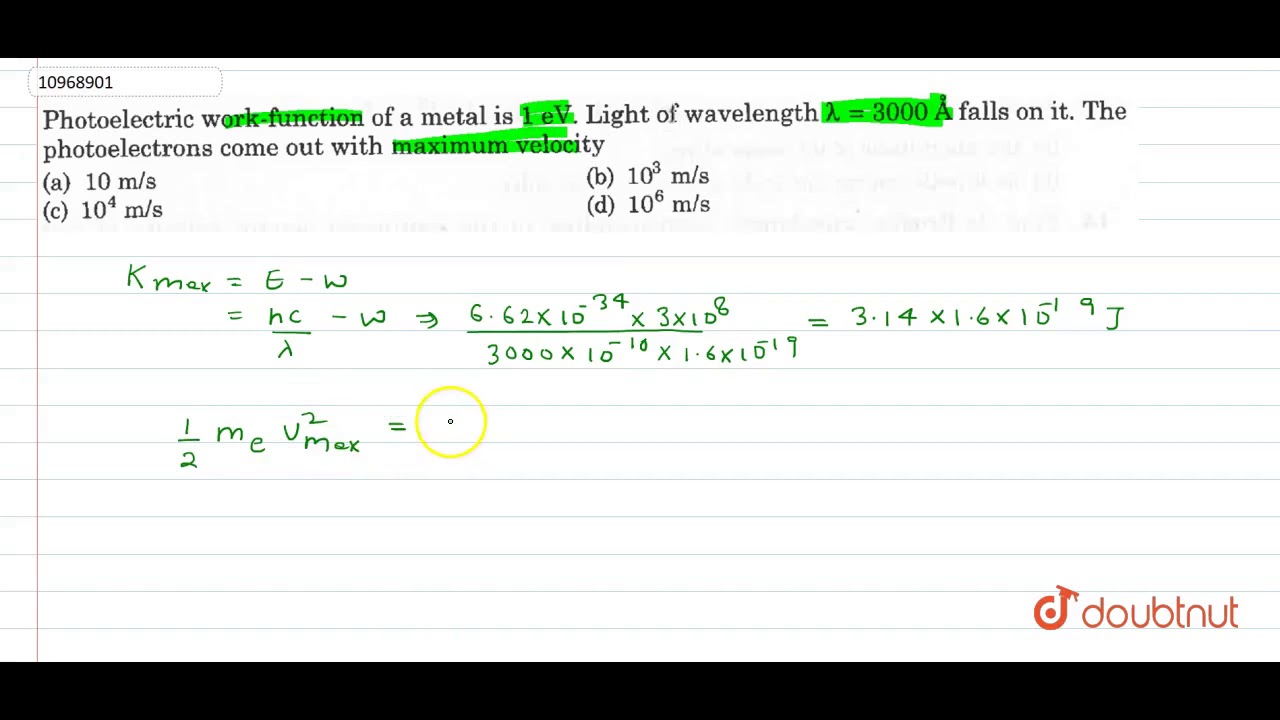 10968901
Photoelectric work-function of a metal is 1 eV. Light of wavelength λ = 3000 Å falls on it. The
photoelectrons come out with maximum velocity
(a) 10 m/s (b) 10³ m/s
(c) 10⁴ m/s (d) 10⁶ m/s
Kmax = E - w
= hc/λ - w ⇒ 6.62×10⁻³⁴ × 3×10⁸ / 3000×10⁻¹⁰ × 1.6×10⁻¹⁹ = 3.14 × 1.6 × 10⁻¹⁹ J
1/2 me v²max =
doubtnut